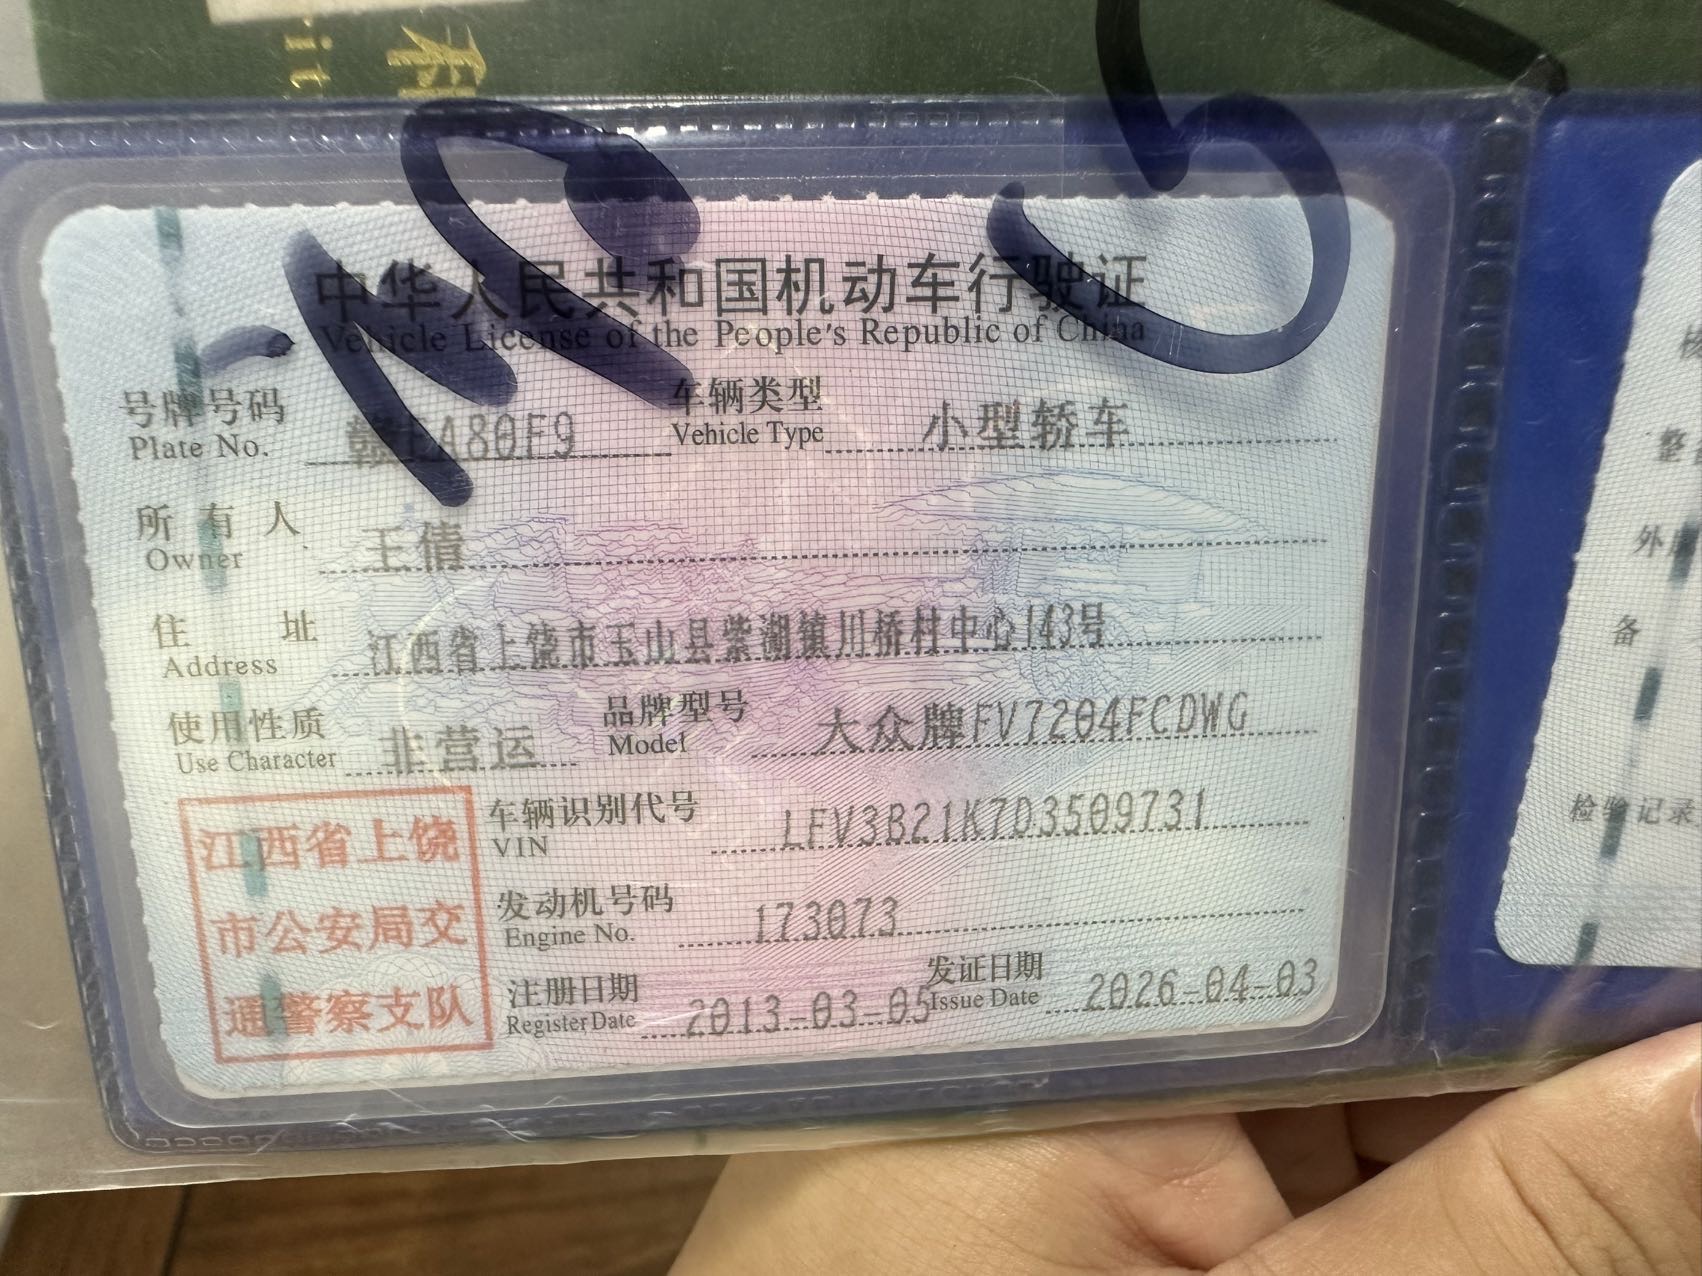 中华人民共和国机动车行驶证
Vehicle License of the People's Republic of China
号牌号码 赣EA80F9 车辆类型 小型轿车
Plate No. Vehicle Type
所有人 王倩
Owner
住址 江西省上饶市玉山县紫湖镇川桥村中心143号
Address
使用性质 非营运 品牌型号 大众牌FV7204FCDWG
Use Character Model
车辆识别代号 LFV3B21K7D3509731
VIN
发动机号码 173073
Engine No.
注册日期 2013-03-05 发证日期 2026-04-03
Register Date Issue Date
江西省上饶
市公安局交
通警察支队
外
备
检验记录